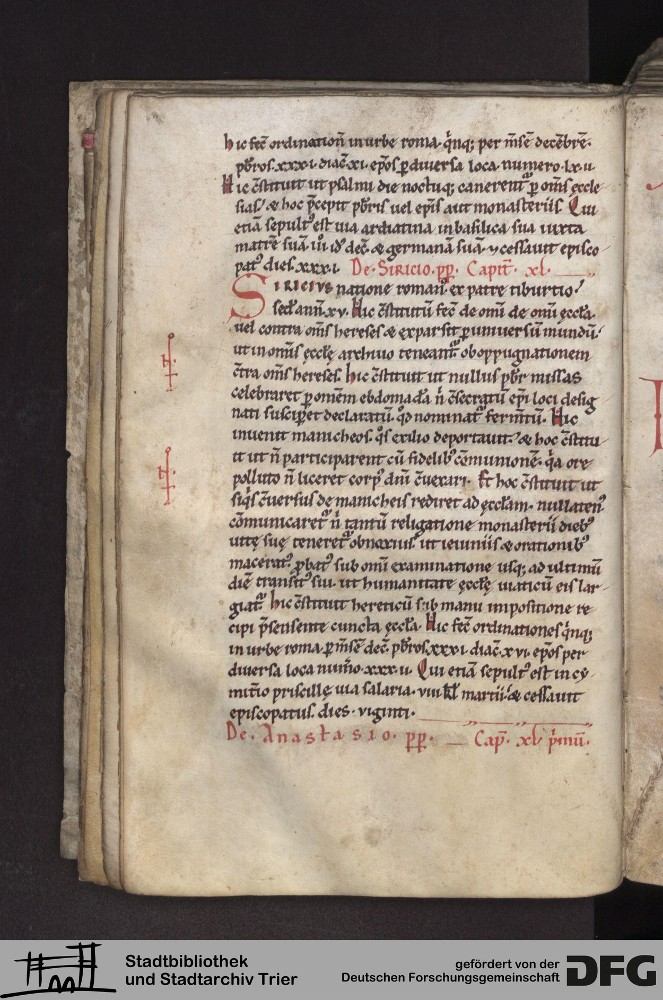 hic fec̄ ordination̄ in urbe roma · q̇nq; per m̄se decēbre ·
p̄bros · xxx · i · diac̄ · xi · ep̄os ꝑ diuersa loca · numero · lx · u ·
Hic c̄stituit ut psalmi die noctuq; canerent᷑ ꝑ om̄s ęccle
sias · & hoc p̄cepit p̄bris uel ep̄is aut monasteriis · Qui
etiā sepult᷒ est uia ardiatina in basilica sua iuxta
matrē suā · iii id᷒ dec̄ · & germanā suā · & cessauit episco
pat᷒ dies · xxx · i · De · Siricio · pp̄ · Capit̄ · xl ·
Siricius natione roman᷒ · ex patre tiburtio ·
sed̄ ann̄ · xv · Hic c̄stitutū fec̄ de om̄i de om̄i ęccl̄a ·
uel contra om̄s hereses & exparsit ꝑ uniuersū mundū ·
ut in om̄is ęccl̄ę archiuo teneant᷑ ob oppugnationem
c̄tra om̄s hereses · hic c̄stituit ut nullus p̄br missas
celebraret ꝑ omnem ebdomadā n̄ c̄secratū ep̄i loci desig
nati susciꝑet declaratū · qd̄ nominat᷑ ferm̄tū · Hic
inuenit manicheos · q̊s exilio deportauit · & hoc c̄stitu
it ut n̄ participarent cū fidelib᷒ cōmunionē · q̇a ore
polluto n̄ liceret corp᷒ dn̄i c̄uexari · Et hoc c̄stituit ut
siq̇s c̄uersus de manicheis rediret ad ęccl̄am · nullaten᷒
cōmunicaret᷑ n̄ tantū religatione monasterii dieb᷒
uitę suę teneret᷑ obnoxius · ut ieiuniis & orationib᷒
macerat᷒ ꝓbat᷒ sub om̄i examinatione usq; ad ultimū
diē transit᷒ sui · ut humanitate ęccl̄ę uiaticū eis lar
giat᷑ · hic c̄stituit hereticū sub manu impositione re
cipi p̄sensente cuncta ęccl̄a · Hic fec̄ ordinationes q̇nq;
in urbe roma · ꝑ m̄se dec̄ · p̄bros · xxx · i · diac̄ · xvi · ep̄os per
diuersa loca num̄o · xxx · ii · Qui etiā sepult᷒ est in cy
mit̄io priscillę uia salaria · viii kl̄ martii · & cessauit
episcopatus · dies · viginti ·
De · Anastasio · pp̄ · Cap̄ · xl · ṗmū ·
Stadtbibliothek
und Stadtarchiv Trier
gefördert von der
Deutschen Forschungsgemeinschaft
DFG